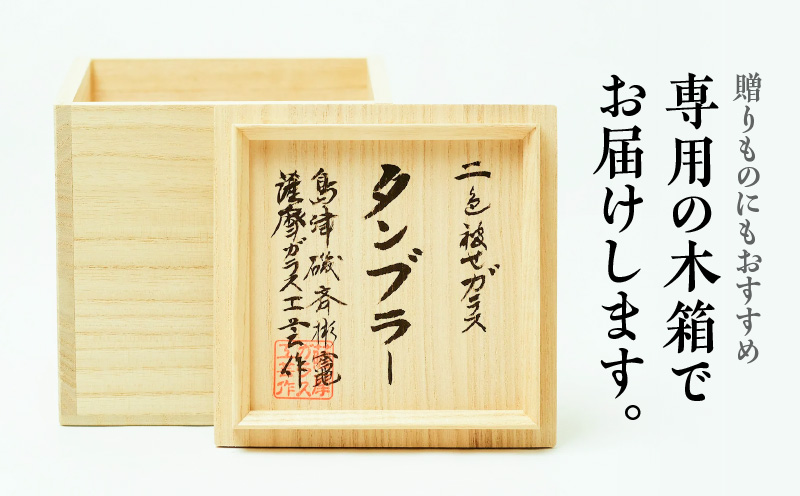 贈りものにもおすすめ
専用の木箱で
お届けします。
二色被せガラス
タンブラー
島津
薩摩ガラス工芸作